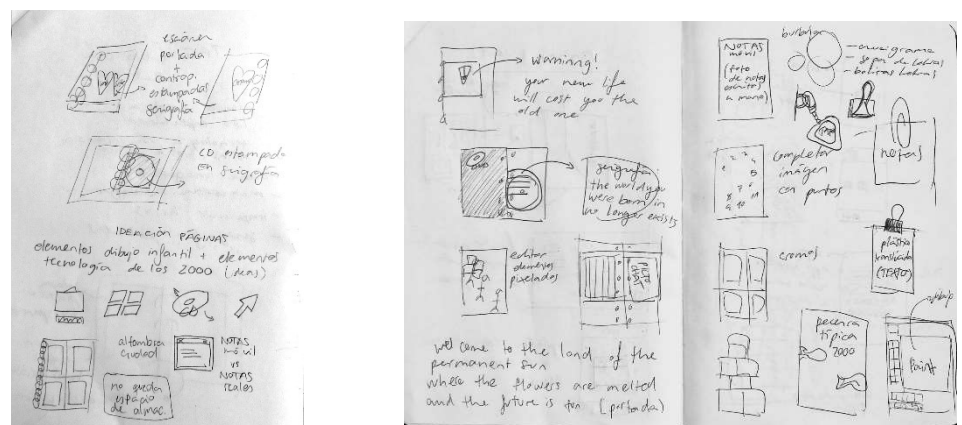 portada
+
estampadas
serigrafía
CD estampado
en serigrafía
IDEACIÓN PÁGINAS
elementos dibujo infantil + elementos
tecnología de los 2000 (ideas)
alfombra
ciudad
NOTAS
móvil
vs
NOTAS
reales
no queda
espacio
de almac.
warning!
your new life
will cost you the
old one
serigrafía:
the world you
were born in
no longer exists
editar
elementos
pixelados
PICTO
CHAT
welcome to the land of the
permanent sun
where the flowers are melted
and the future is fun (portada)
NOTAS
móvil
(foto
de notas
escritas
a mano)
burbujas
— crucigrama
— sopa de letras
— bolitas letras
completar
imágen
con puntos
notas
plástico
translúcido
(TEXTO)
cromos
pecera
típica
2000
dibujo
Paint